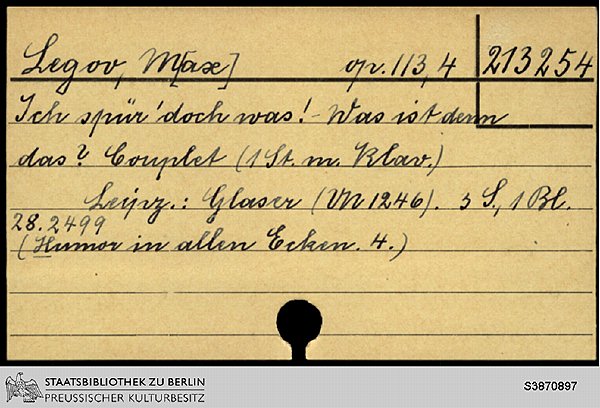 Legov, M[ax] op. 113,4 213254
Ich spür' doch was! - Was ist denn
das? Couplet (1 St. m. Klav.)
Leipz.: Glaser (VN 1246). 3 S., 1 Bl.
28.2499
(Humor in allen Ecken. 4.)
STAATSBIBLIOTHEK ZU BERLIN
PREUSSISCHER KULTURBESITZ
S3870897